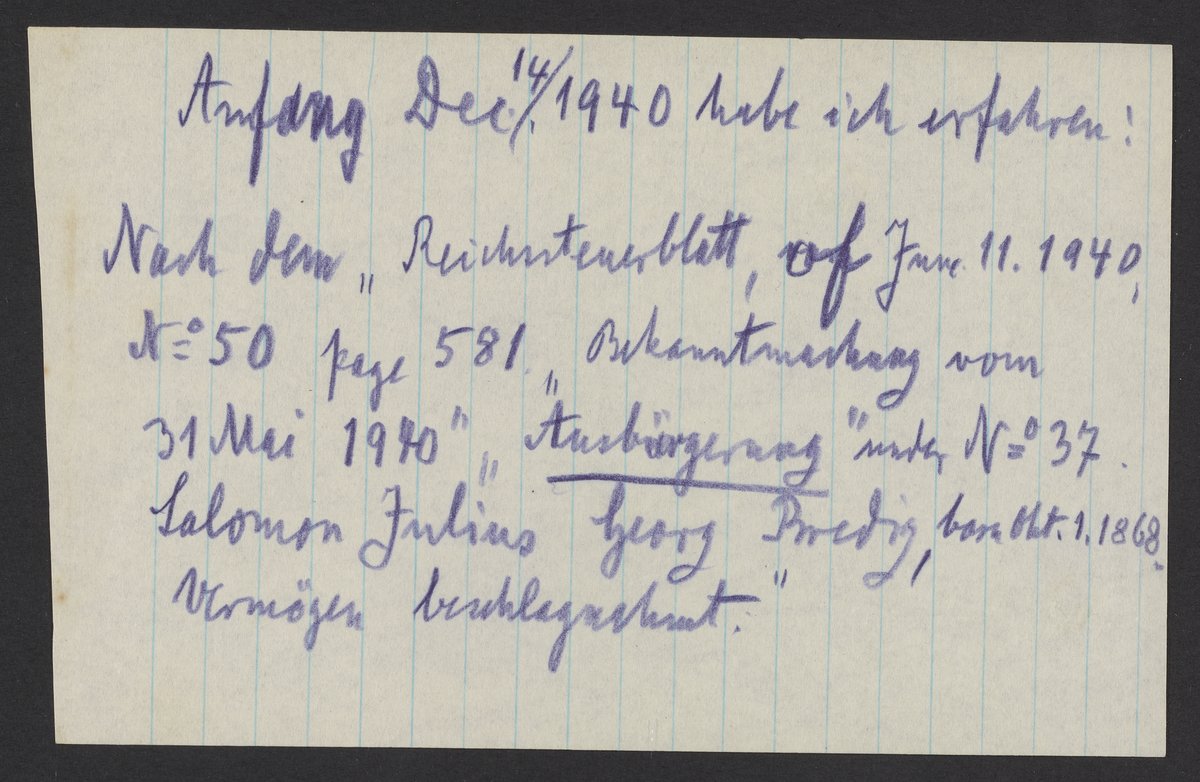 Anfang Dec. 14/. 1940 habe ich erfahren:
Nach dem „Reichssteuerblatt, of June 11. 1940,
No 50 page 581. „Bekanntmachung vom
31 Mai 1940" „Ausbürgerung" under No 37.
Salomon Julius Georg Bredig, born Okt. 1. 1868.
Vermögen beschlagnahmt."